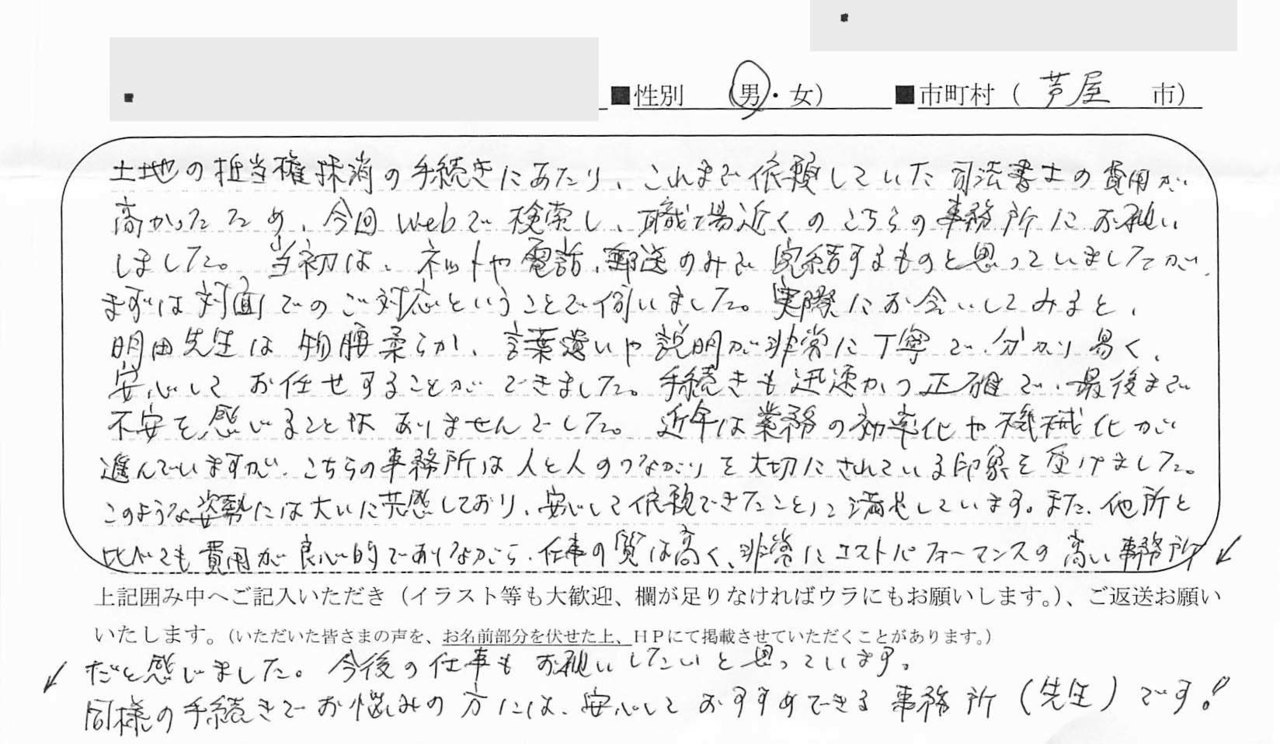 ■性別 (男・女) ■市町村(芦屋 市)
土地の抵当権抹消の手続きにあたり、これまで依頼していた司法書士の費用が
高かったため、今回webで検索し、職場近くのこちらの事務所にお願い
しました。当初は、ネットや電話、郵送のみで完結するものと思っていましたが、
まずは対面でのご対応ということで伺いました。実際にお会いしてみると、
明田先生は物腰柔らか、言葉遣いや説明が非常に丁寧で、分かり易く、
安心してお任せすることができました。手続きも迅速かつ正確で、最後まで
不安を感じることはありませんでした。近年は業務の効率化や機械化が
進んでいますが、こちらの事務所は人と人のつながりを大切にされている印象を受けました。
このような姿勢には大いに共感しており、安心して依頼できたことに満足しています。また、他所と
比べても費用が良心的でありながら、仕事の質は高く、非常にコストパフォーマンスの高い事務所↙
上記囲み中へご記入いただき(イラスト等も大歓迎、欄が足りなければウラにもお願いします。)、ご返送お願い
いたします。(いただいた皆さまの声を、お名前部分を伏せた上、HPにて掲載させていただくことがあります。)
↙だと感じました。今後の仕事もお願いしたいと思っています。
同様の手続きでお悩みの方には、安心しておすすめできる事務所(先生)です!